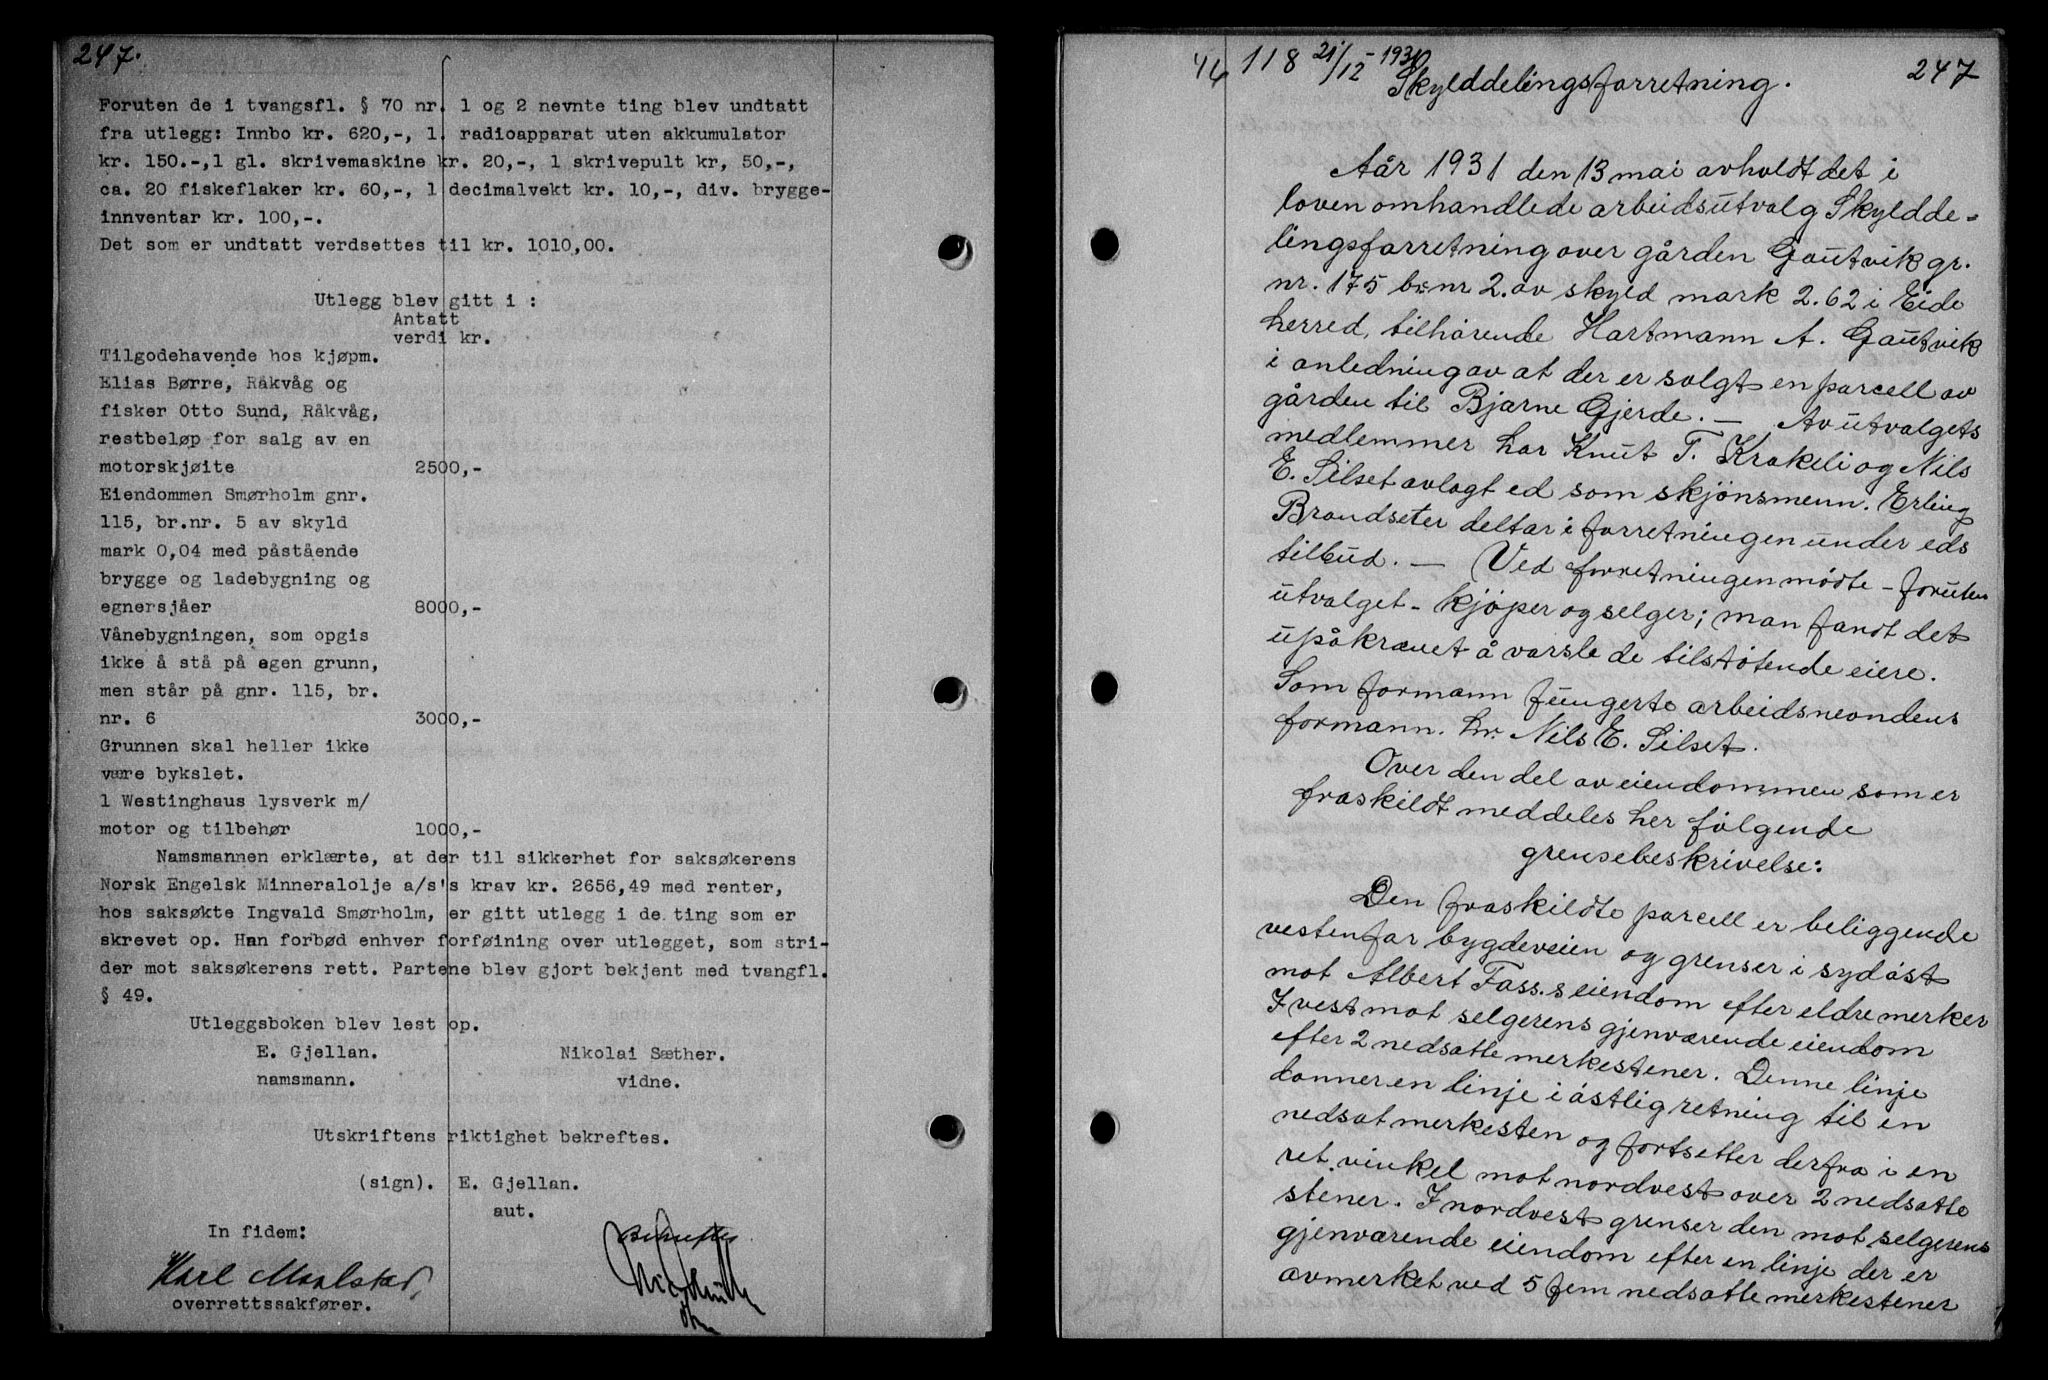 247.
Foruten de i tvangsfl. § 70 nr. 1 og 2 nevnte ting blev undtatt
fra utlegg: Innbo kr. 620,-, 1 radioapparat uten akkumulator
kr. 150.-,1 gl. skrivemaskine kr. 20,-, 1 skrivepult kr, 50,-,
ca. 20 fiskeflaker kr. 60,-, 1 decimalvekt kr. 10,-, div. brygge-
innventar kr. 100,-.
Det som er undtatt verdsettes til kr. 1010,00.
Utlegg blev gitt i :
Antatt
verdi kr.
Tilgodehavende hos kjøpm.
Elias Børre, Råkvåg og
fisker Otto Sund, Råkvåg,
restbeløp for salg av en
motorskjøite 2500,-
Eiendommen Smørholm gnr.
115, br.nr. 5 av skyld
mark 0,04 med påstående
brygge og ladebygning og
egnersjåer 8000,-
Vånebygningen, som opgis
ikke å stå på egen grunn,
men står på gnr. 115, br.
nr. 6 3000,-
Grunnen skal heller ikke
være bykslet.
1 Westinghaus lysverk m/
motor og tilbehør 1000,-
Namsmannen erklærte, at der til sikkerhet for saksøkerens
Norsk Engelsk Minneralolje a/s's krav kr. 2656,49 med renter,
hos saksøkte Ingvald Smørholm, er gitt utlegg i de ting som er
skrevet op. Han forbød enhver forføining over utlegget, som stri-
der mot saksøkerens rett. Partene blev gjort bekjent med tvangfl.
§ 49.
Utleggsboken blev lest op.
E. Gjellan. Nikolai Sæther.
namsmann. vidne.
Utskriftens riktighet bekreftes.
(sign). E. Gjellan.
aut.
In fidem:
Karl Maalstad,
overrettssakfører.
Bekreftes
118 21/12-1931 247
Skylddelingsforretning.
Aår 1931 den 13 mai avholdt det i
loven omhandlede arbeidsutvalg Skyldde-
lingsforretning over gården Gautvik gr.
nr. 175 br nr 2. av skyld mark 2.62 i Eide
herred, tilhørende Hartmann A. Gautvik
i anledning av at der er solgt en parcell av
gården til Bjarne Gjerde. — Av utvalgets
medlemmer har Knut T. Krakeli og Nils
E. Silset avlagt ed som skjønsmenn. Erling
Brandseter deltar i forretningen under eds
tilbud. — Ved forretningen møtte - foruten
utvalget - kjøper og selger; man fandt det
upåkrævet å varsle de tilstøtende eiere.
Som formann fungerte arbeidsnevndens
formann. hr. Nils E. Silset.
Over den del av eiendommen som er
fraskildt meddeles her følgende
grensebeskrivelse:
Den fraskildte parcell er beliggende
vestenfor bygdeveien og grenser i sydøst
mot Albert Fass.s eiendom efter eldre merker
I vest mot selgerens gjenværende eiendom
efter 2 nedsatte merkestener. Denne linje
danner en linje i østlig retning til en
nedsat merkesten og fortsetter derfra i en
ret vinkel mot nordvest over 2 nedsatte
stener. I nordvest grenser den mot selgerens
gjenværende eiendom efter en linje der er
avmerket ved 5 fem nedsatte merkestener